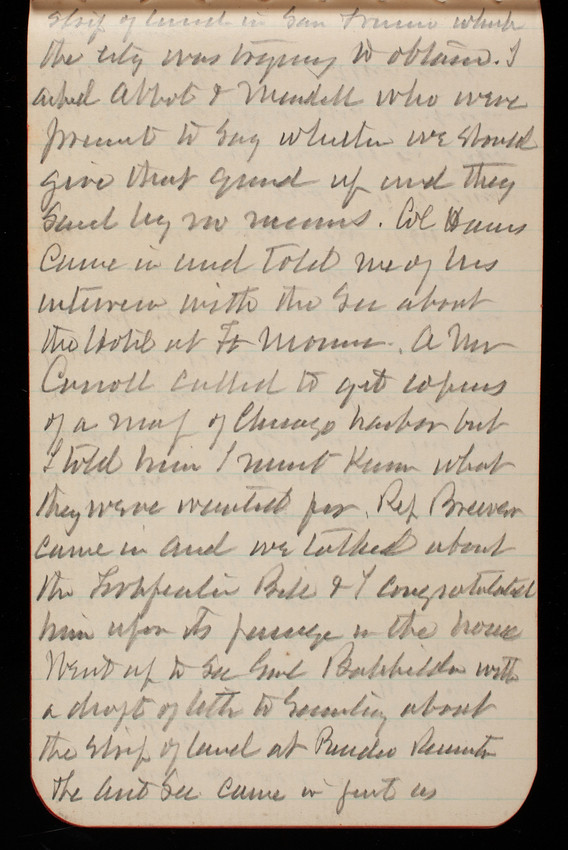 strip of land in San Francisco which
the city was trying to obtain. I
asked Abbot & Mendell who were
present to say whether we should
give that ground up and they
said by no means. Col Hains
came in and told me of his
interview with the Sec about
the Hotel at Ft Monroe. A Mr
Carroll called to get copies
of a map of Chicago harbor but
I told him I must know what
they were wanted for. Rep Brewer
came in and we talked about
the Fortification Bill & I congratulated
him upon its passage in the house
Went up to See Genl Batchelder with
a draft of letter to Secretary about
the strip of land at
The Asst Sec came in just as